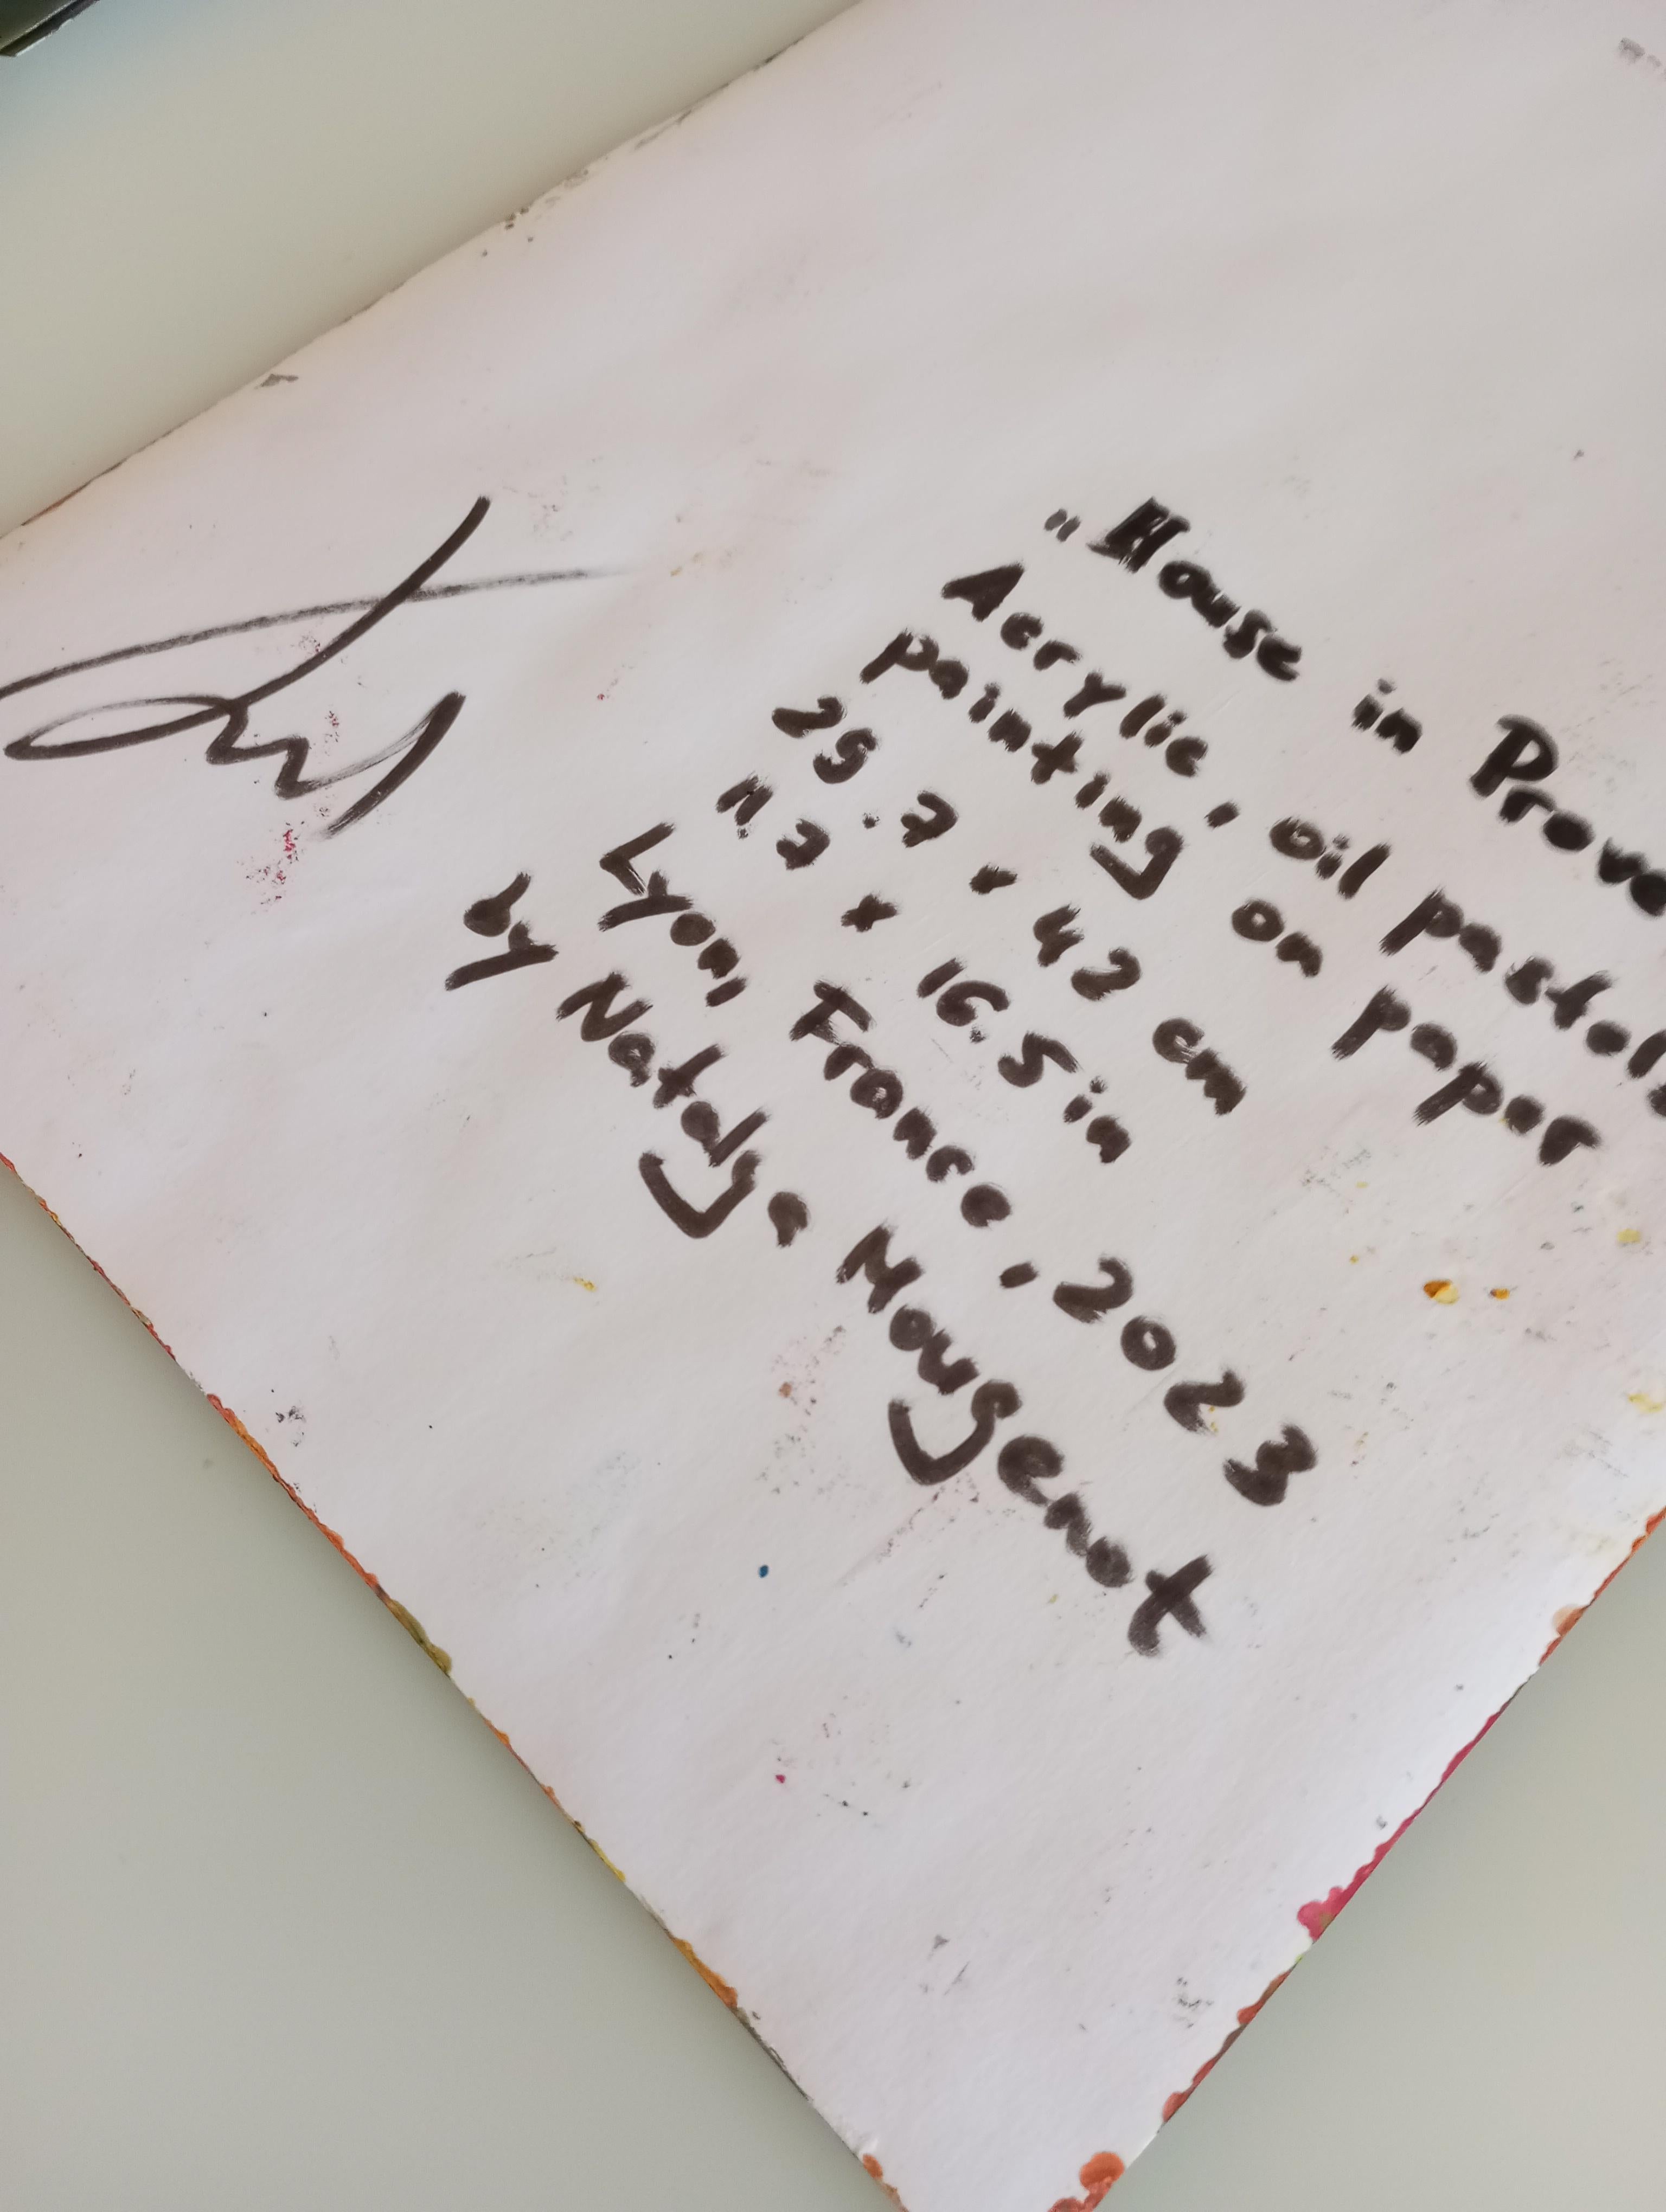 "House in Prove
Acrylic, oil pastels
painting on paper
29.7 x 42 cm
11.7 x 16.5 in
Lyon, France, 2023
by Natalya Mougenot